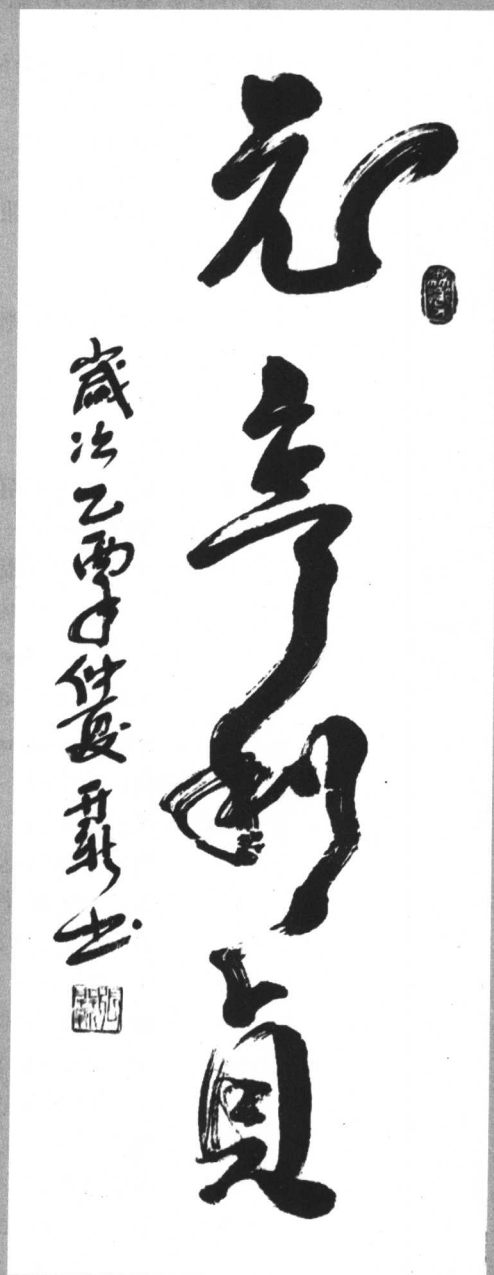 元亨利貞
歲次乙酉年仲夏
書